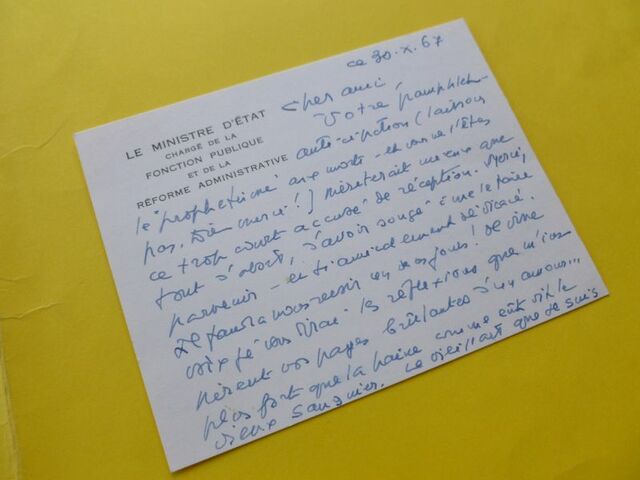 ce 30.X.67
LE MINISTRE D'ÉTAT
CHARGÉ DE LA
FONCTION PUBLIQUE
ET DE LA
RÉFORME ADMINISTRATIVE
Cher ami,
Votre pamphlet-
anticipation (laissons
le "prophétisme" aux morts - et vous ne l'êtes
pas. Dieu merci!) mériterait mieux que
ce trop court accusé de réception. Merci,
tout d'abord, d'avoir songé à me le faire
parvenir - et si amicalement dédicacé.
Il faudra nous revoir un de ces jours! De vive
voix je vous dirai les réflexions que m'ins
pirent vos pages brûlantes d'un amour...
plus fort que la haine comme eût dit le
vieux Sangnier. Le vieillard que je suis